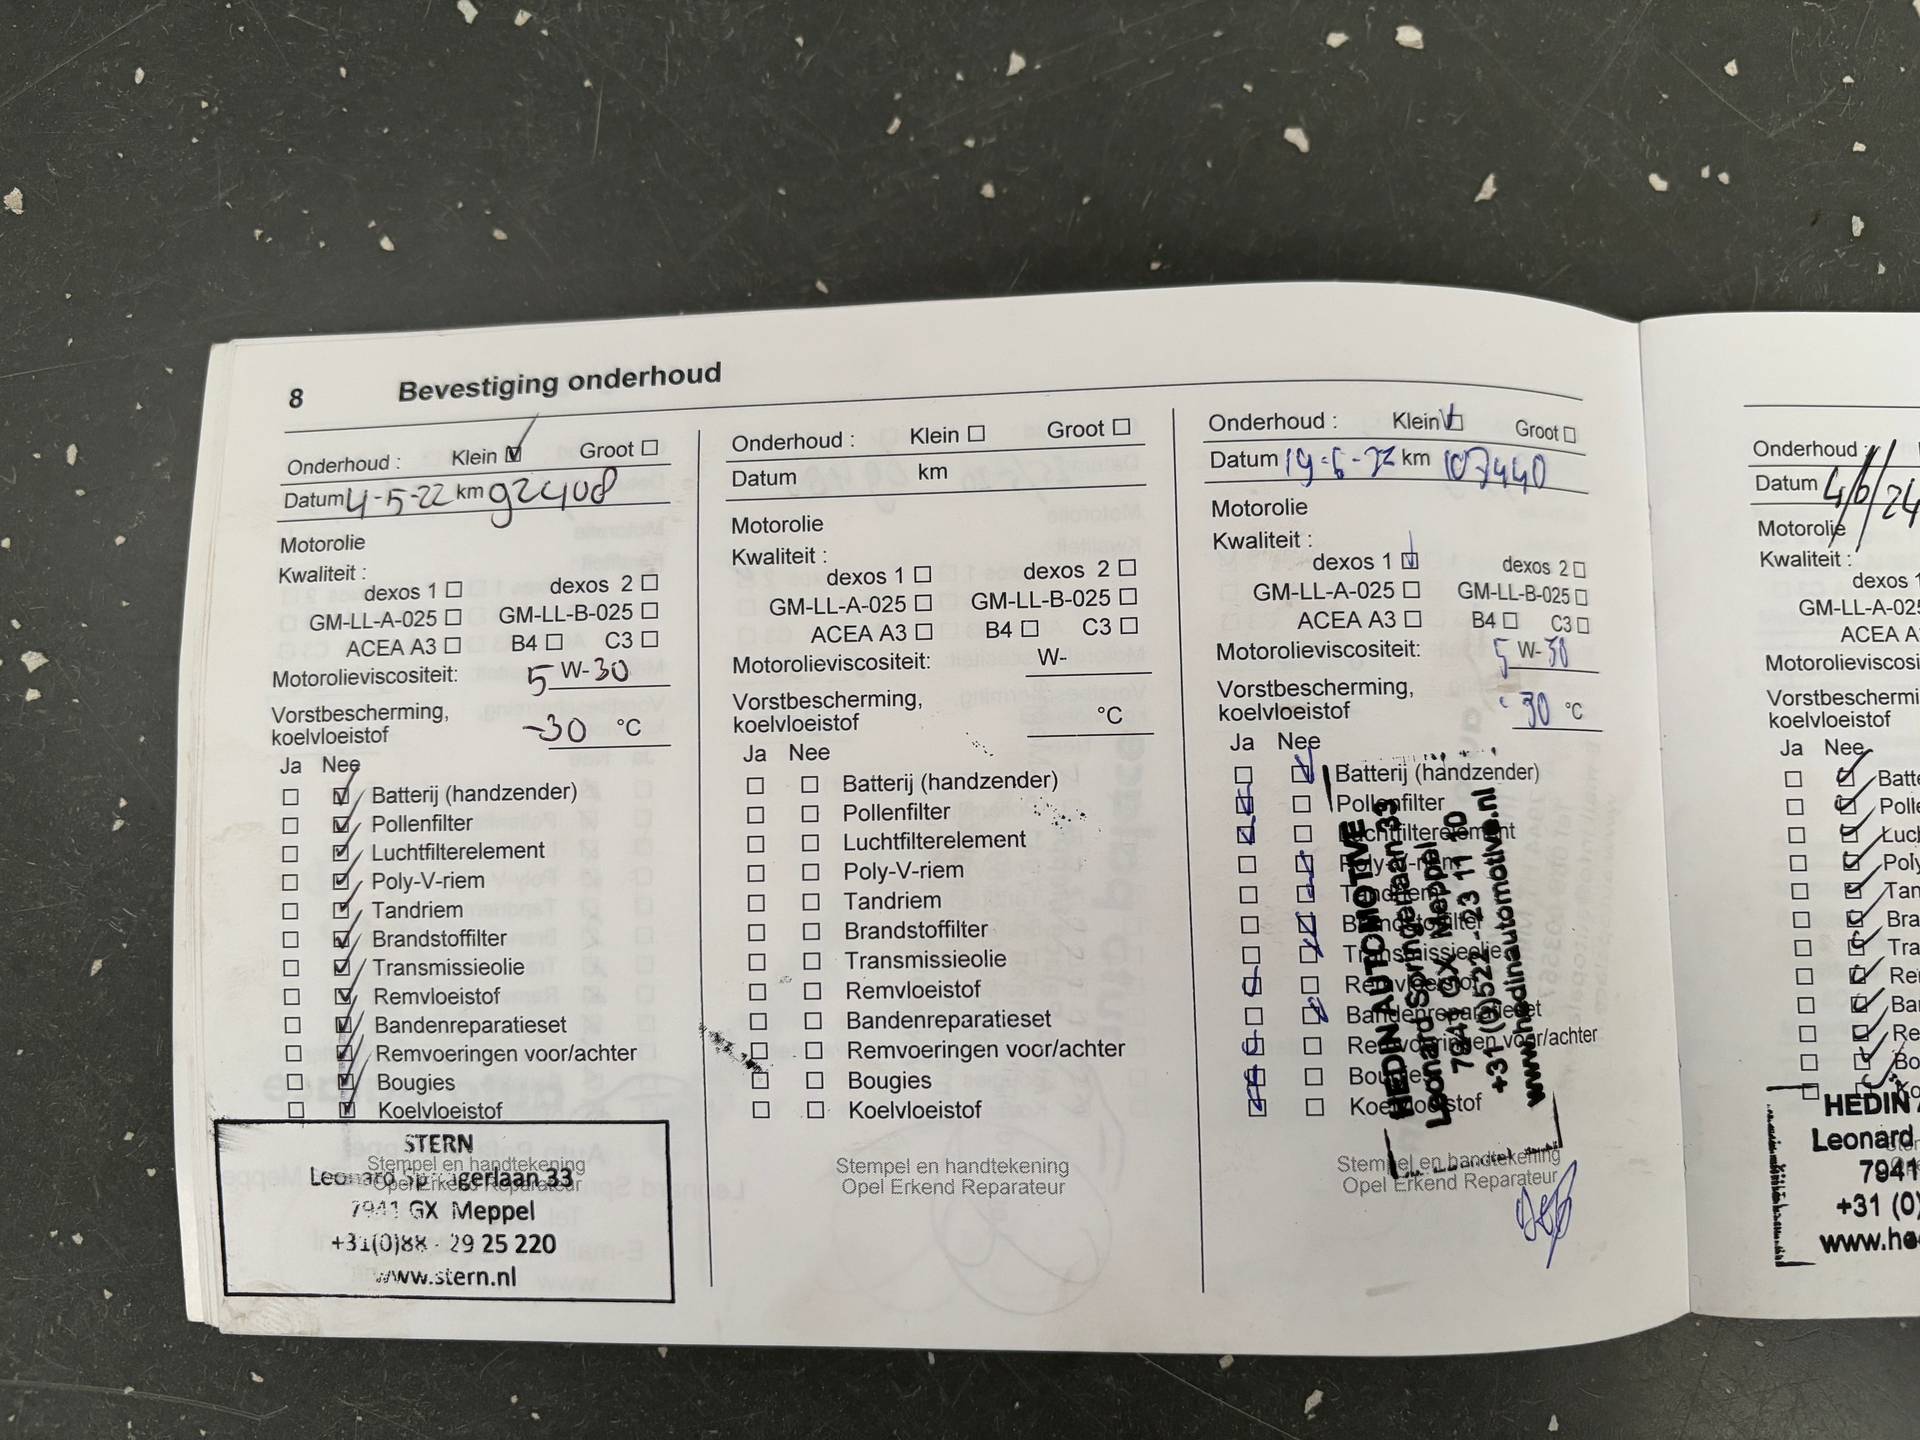 8 Bevestiging onderhoud
Onderhoud : Klein Groot
Datum 4-5-22 km 92408
Motorolie
Kwaliteit :
dexos 1 dexos 2
GM-LL-A-025 GM-LL-B-025
ACEA A3 B4 C3
Motorolieviscositeit: 5 W-30
Vorstbescherming,
koelvloeistof -30 °C
Ja Nee
Batterij (handzender)
Pollenfilter
Luchtfilterelement
Poly-V-riem
Tandriem
Brandstoffilter
Transmissieolie
Remvloeistof
Bandenreparatieset
Remvoeringen voor/achter
Bougies
Koelvloeistof
Stempel en handtekening
Opel Erkend Reparateur
STERN
Leonard Springerlaan 33
7941 GX Meppel
+31(0)88 - 29 25 220
www.stern.nl
Onderhoud : Klein Groot
Datum km
Motorolie
Kwaliteit :
dexos 1 dexos 2
GM-LL-A-025 GM-LL-B-025
ACEA A3 B4 C3
Motorolieviscositeit: W-
Vorstbescherming,
koelvloeistof °C
Ja Nee
Batterij (handzender)
Pollenfilter
Luchtfilterelement
Poly-V-riem
Tandriem
Brandstoffilter
Transmissieolie
Remvloeistof
Bandenreparatieset
Remvoeringen voor/achter
Bougies
Koelvloeistof
Stempel en handtekening
Opel Erkend Reparateur
Onderhoud : Klein Groot
Datum km 107440
Motorolie
Kwaliteit :
dexos 1 dexos 2
GM-LL-A-025 GM-LL-B-025
ACEA A3 B4 C3
Motorolieviscositeit: 5 W-30
Vorstbescherming,
koelvloeistof -30 °C
Ja Nee
Batterij (handzender)
Pollenfilter
Luchtfilterelement
Poly-V-riem
Tandriem
Brandstoffilter
Transmissieolie
Remvloeistof
Bandenreparatieset
Remvoeringen voor/achter
Bougies
Koelvloeistof
Stempel en handtekening
Opel Erkend Reparateur
HEDIN AUTOMOTIVE
Leonard Springerlaan 33
7941 GX Meppel
+31 (0)522-23 11 10
www.hedinautomotive.nl
Onderhoud :
Datum 4/6/24
Motorolie
Kwaliteit :
dexos 1
GM-LL-A-025
ACEA A
Motorolieviscosi
Vorstbeschermi
koelvloeistof
Ja Nee
Batt
Polle
Luch
Poly
Tan
Bra
Tra
Re
Ba
Re
Bo
Ko
HEDIN
Leonard
7941
+31 (0)
www.he